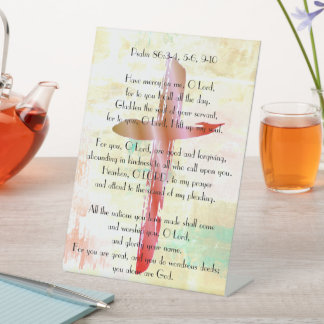 Psalm 86:3-4, 5-6, 9-10
Have mercy on me, O Lord,
for to you I call all the day.
Gladden the soul of your servant,
for to you, O Lord, I lift up my soul.
For you, O Lord, are good and forgiving,
abounding in kindness to all who call upon you.
Hearken, O LORD, to my prayer
and attend to the sound of my pleading.
All the nations you have made shall come
and worship you, O Lord,
and glorify your name.
For you are great, and you do wondrous deeds;
you alone are God.